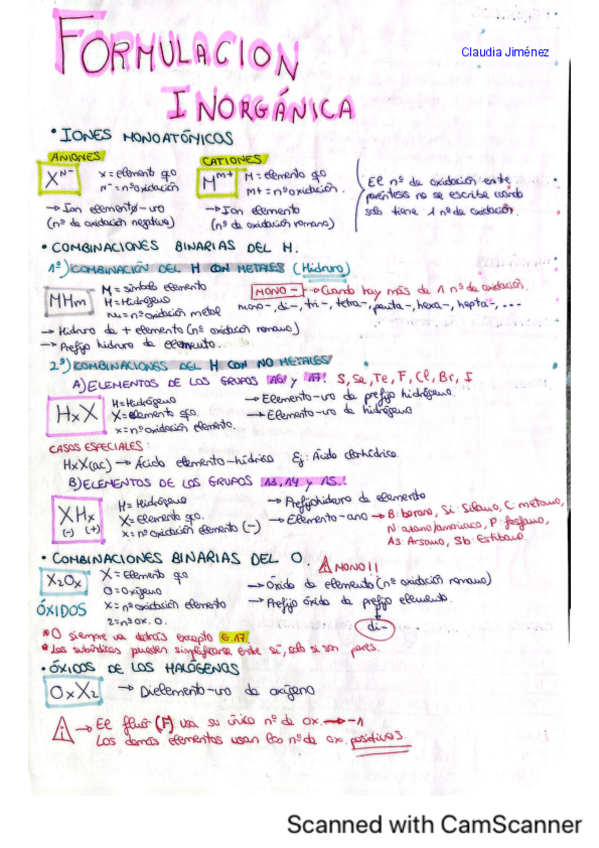 FORMULACION
Claudia Jiménez
INORGÁNICA
• IONES MONOATÓMICOS
ANIONES
X^n-
X = elemento qco
n- = nº oxidación
→ Ion elemento-uro
(nº de oxidación negativo)
CATIONES
M^m+
M = elemento qco
M+ = nº oxidación.
→ Ion elemento
(nº de oxidación romano)
El nº de oxidación entre
paréntesis no se escribe cuando
solo tiene 1 nº de oxidación.
• COMBINACIONES BINARIAS DEL H.
1º) COMBINACIÓN DEL H CON METALES (Hidruro)
MHm
M = símbolo elemento
H = Hidrógeno
m = nº oxidación metal
MONO - → Cuando hay más de 1 nº de oxidación.
mono-, di-, tri-, tetra-, penta-, hexa-, hepta-, ...
→ Hidruro de + elemento (nº oxidación romano)
→ Prefijo hidruro de elemento.
2º) COMBINACIONES DEL H CON NO METALES
A) ELEMENTOS DE LOS GRUPOS 16 y 17: S, Se, Te, F, Cl, Br, I
HxX
H = Hidrógeno
X = elemento qco.
x = nº oxidación elemento.
→ Elemento-uro de prefijo hidrógeno.
→ Elemento-uro de hidrógeno
CASOS ESPECIALES:
HxX(ac) → Ácido elemento-hídrico Ej: Ácido clorhídrico.
B) ELEMENTOS DE LOS GRUPOS 13, 14 y 15.
XHx
(-) (+)
H = Hidrógeno
X = Elemento qco.
x = nº oxidación elemento (-)
→ Prefijohidruro de elemento
→ Elemento-ano → B: borano, Si: Silano, C: metano,
N: azano/amoniaco, P: fosfano,
As: Arsano, Sb: Estibano.
• COMBINACIONES BINARIAS DEL O.
⚠ MONO!!
X₂Ox
ÓXIDOS
X = Elemento qco
O = Oxígeno
x = nº oxidación elemento
2 = nº ox. O.
→ Óxido de elemento (nº oxidación romano)
→ Prefijo óxido de prefijo elemento.
di-
* O siempre va detrás excepto G.17
* Los subíndices pueden simplificarse entre sí, solo si son pares.
• ÓXIDOS DE LOS HALÓGENOS
OxX₂
→ Dielemento-uro de oxígeno
⚠ → El flúor (F) usa su único nº de ox. → -1
Los demás elementos usan los nº de ox. positivos
Scanned with CamScanner